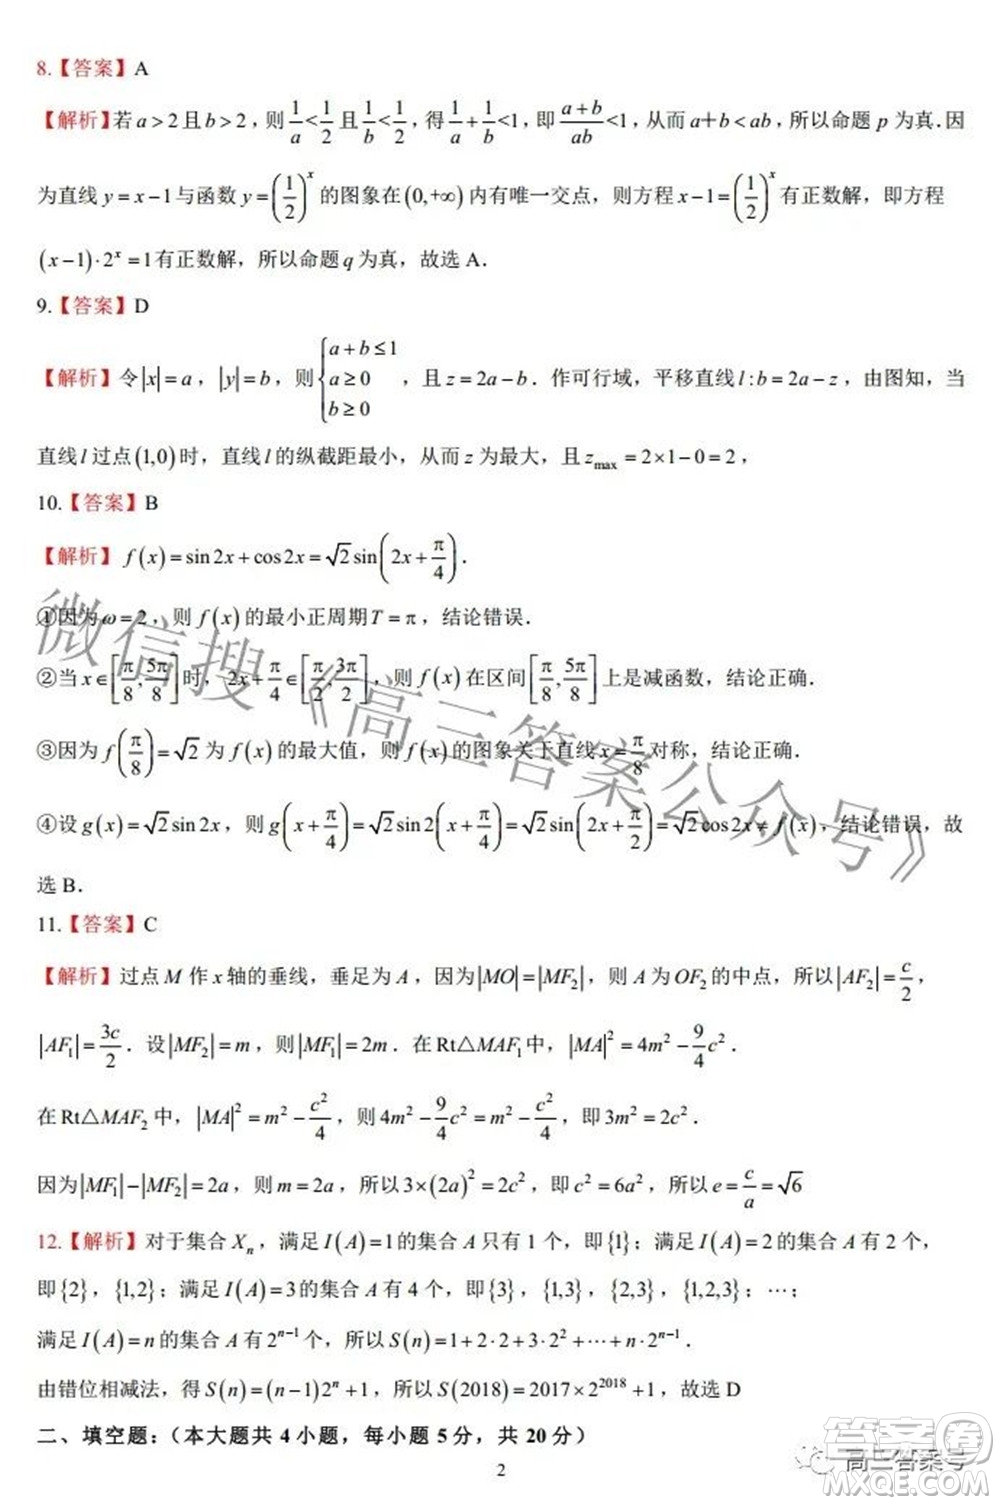 8.【答案】A
【解析】若 a>2 且 b>2，则 1/a<1/2 且 1/b<1/2，得 1/a+1/b<1，即 (a+b)/ab<1，从而 a+b<ab，所以命题 p 为真.因
为直线 y=x−1 与函数 y=(1/2)^x 的图象在 (0,+∞) 内有唯一交点，则方程 x−1=(1/2)^x 有正数解，即方程
(x−1)·2^x=1 有正数解，所以命题 q 为真，故选 A．
9.【答案】D
【解析】令 |x|=a，|y|=b，则 {a+b≤1 a≥0 b≥0，且 z=2a−b．作可行域，平移直线 l:b=2a−z，由图知，当
直线 l 过点 (1,0) 时，直线 l 的纵截距最小，从而 z 为最大，且 z_max=2×1−0=2，
10.【答案】B
【解析】f(x)=sin2x+cos2x=√2sin(2x+π/4)．
①因为 ω=2，则 f(x) 的最小正周期 T=π，结论错误.
②当 x∈[π/8,5π/8] 时，2x+π/4∈[π/2,3π/2]，则 f(x) 在区间 [π/8,5π/8] 上是减函数，结论正确.
③因为 f(π/8)=√2 为 f(x) 的最大值，则 f(x) 的图象关于直线 x=π/8 对称，结论正确.
④设 g(x)=√2sin2x，则 g(x+π/4)=√2sin2(x+π/4)=√2sin(2x+π/2)=√2cos2x≠f(x)，结论错误，故
选 B．
11.【答案】C
【解析】过点 M 作 x 轴的垂线，垂足为 A，因为 |MO|=|MF₂|，则 A 为 OF₂ 的中点，所以 |AF₂|=c/2，
|AF₁|=3c/2．设 |MF₂|=m，则 |MF₁|=2m．在 Rt△MAF₁ 中，|MA|²=4m²−9/4c²．
在 Rt△MAF₂ 中，|MA|²=m²−c²/4，则 4m²−9/4c²=m²−c²/4，即 3m²=2c²．
因为 |MF₁|−|MF₂|=2a，则 m=2a，所以 3×(2a)²=2c²，即 c²=6a²，所以 e=c/a=√6
12.【解析】对于集合 Xₙ，满足 I(A)=1 的集合 A 只有 1 个，即{1}；满足 I(A)=2 的集合 A 有 2 个，
即{2}，{1,2}；满足 I(A)=3 的集合 A 有 4 个，即{3}，{1,3}，{2,3}，{1,2,3}；…；
满足 I(A)=n 的集合 A 有 2^(n−1) 个，所以 S(n)=1+2·2+3·2²+⋯+n·2^(n−1)．
由错位相减法，得 S(n)=(n−1)2^n+1，所以 S(2018)=2017×2^2018+1，故选 D
二、填空题：（本大题共 4 小题，每小题 5 分，共 20 分）
2
微信搜《高三答案公众号》
高三答案号
答案圈
MXQE.COM